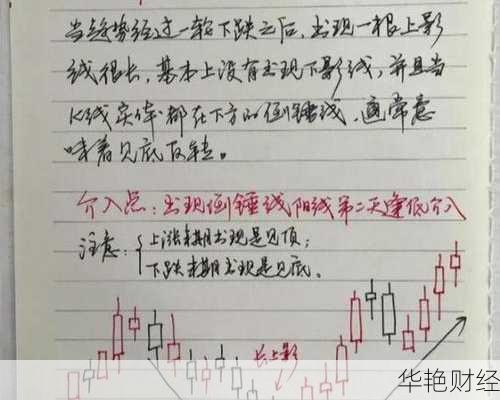 当趋势经过一轮下跌之后，出现一根上影
线很长，基本上没有出现下影线，并且当
K线实体都在下方的倒锤线，通常意
味着见底反转。
介入点：出现倒锤线阳线第二天逢低介入
注意：
上涨末期出现是见顶；
下跌末期出现是见底。
长上影
华艳财经